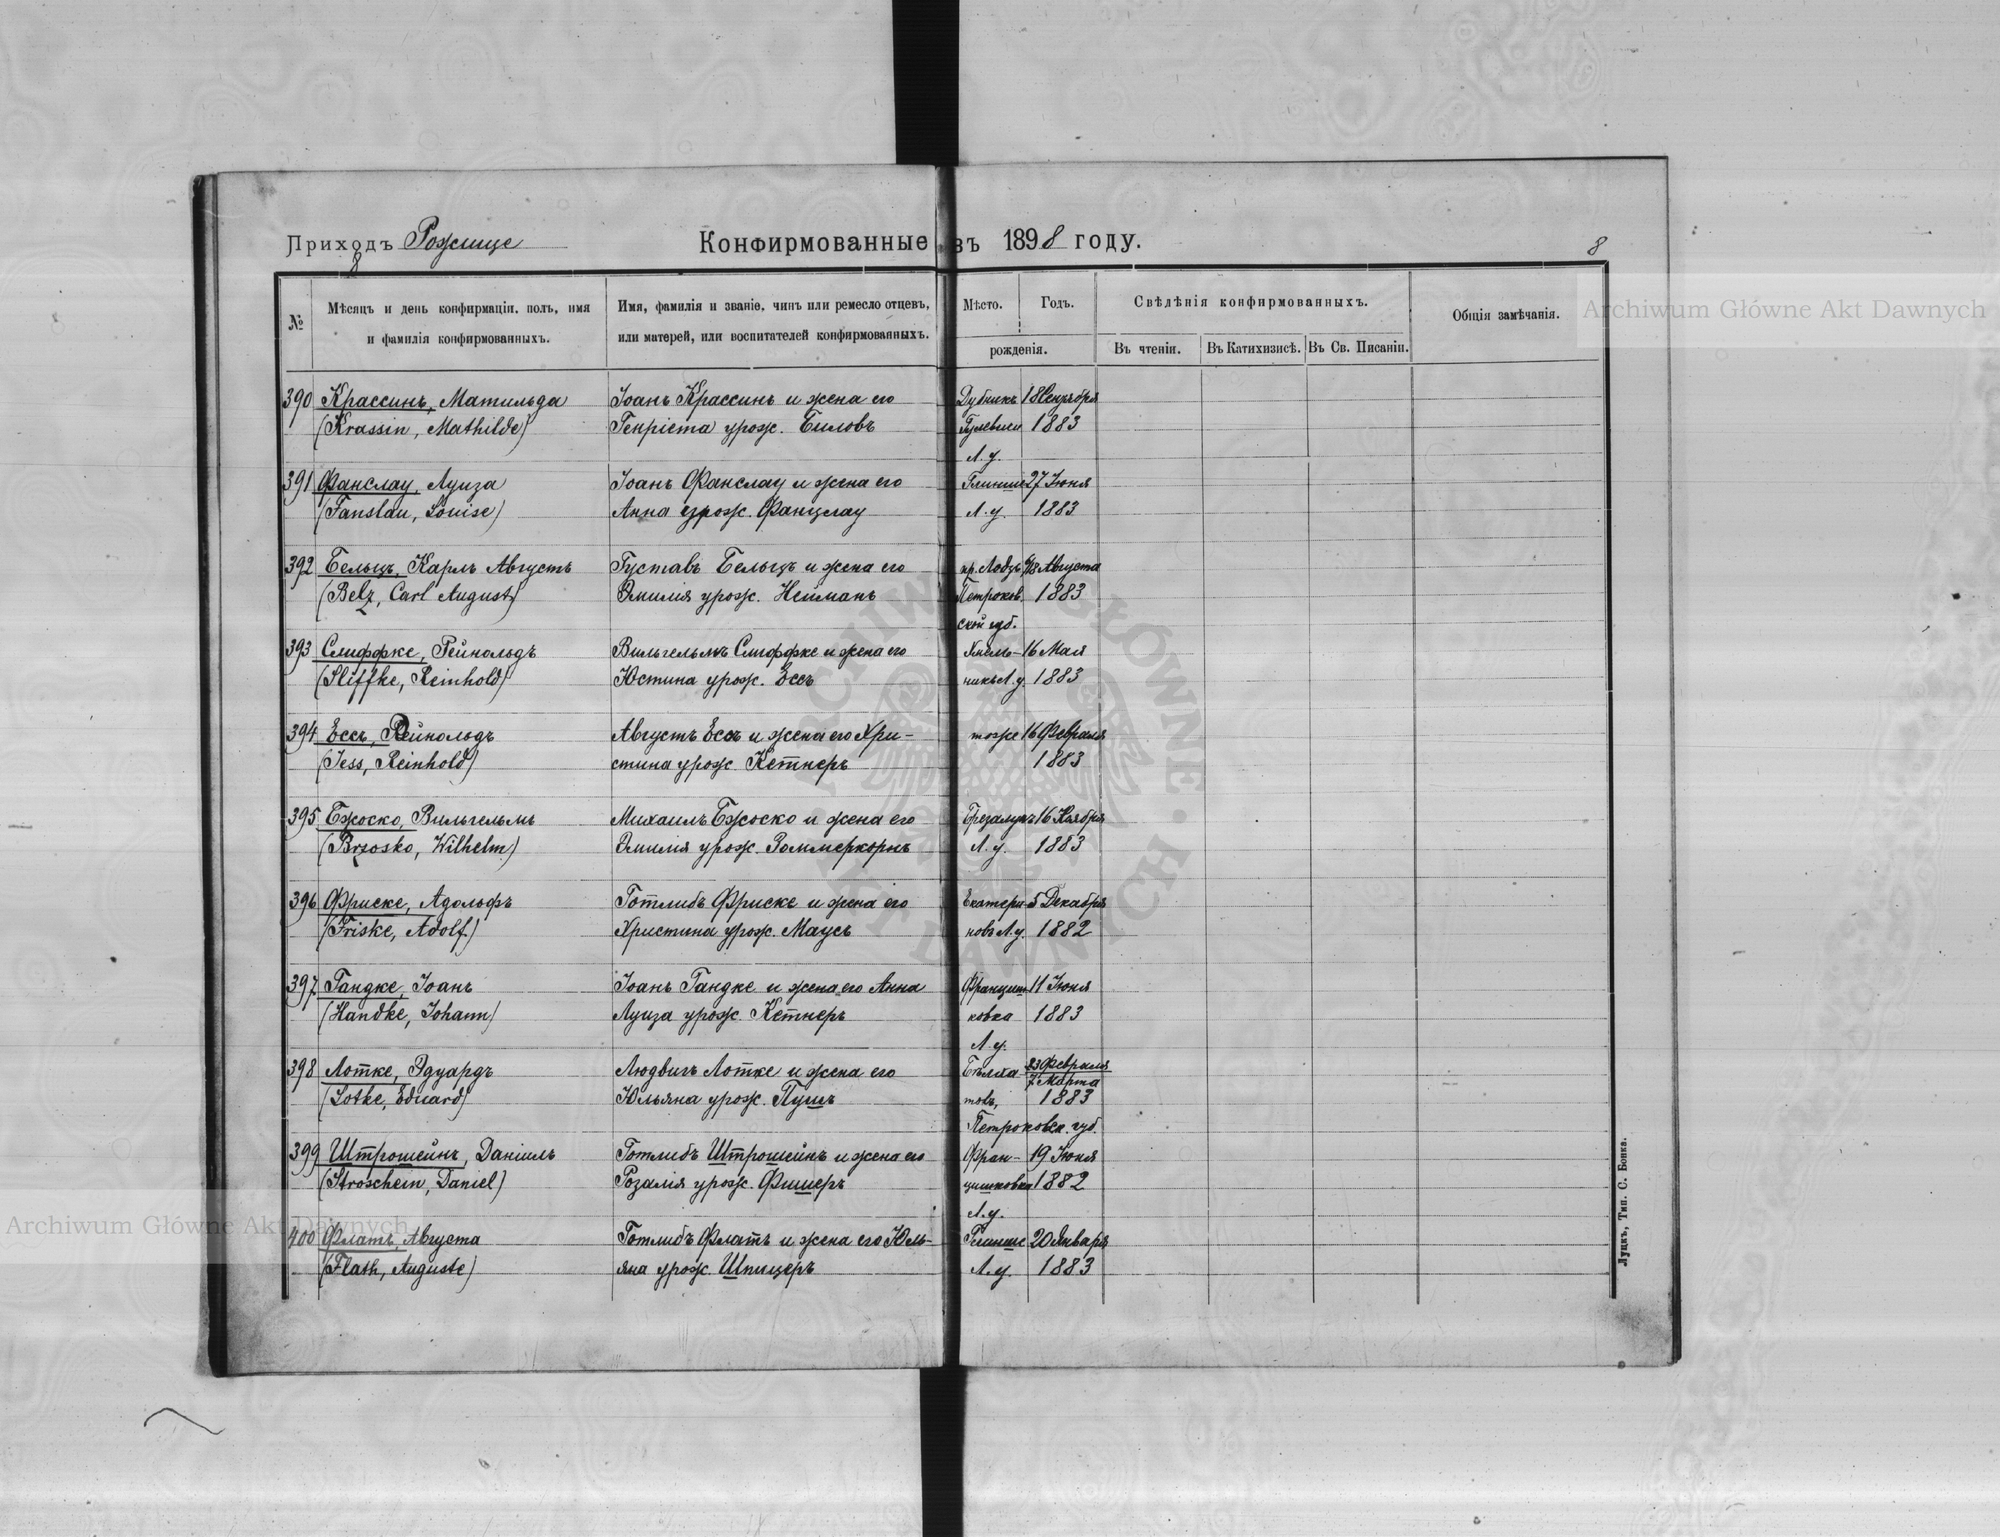 Приходъ Рожище
Конфирмованные въ 1898 году.
8
8
№
Мѣсяцъ и день конфирмаціи, полъ, имя
и фамилія конфирмованныхъ.
Имя, фамилія и званіе, чинъ или ремесло отцевъ,
или матерей, или воспитателей конфирмованныхъ.
Мѣсто.
Годъ.
рожденія.
Свѣдѣнія конфирмованныхъ.
Въ чтеніи.
Въ Катихизисѣ.
Въ Св. Писаніи.
Общія замѣчанія.
Archiwum Główne Akt Dawnych
390 Крассинъ, Матильда Іоанъ Крассинъ и жена его Дубникъ 18 Сентября
(Krassin, Mathilde) Генріета урож. Биловъ 1883
Л. у.
391 Фанслау, Луиза Іоанъ Фанслау и жена его Глинище 27 Іюня
(Fanslau, Louise) Анна урож. Фанцлау Л. у. 1883
392 Бельцъ, Карлъ Августъ Густавъ Бельцъ и жена его гр. Лодзь 6/18 Августа
(Belz, Carl August) Эмилія урож. Нейманъ Петроков 1883
ской губ.
393 Слиффке, Рейнольдъ Вильгельмъ Слиффке и жена его Хмель- 16 Мая
(Sliffke, Reinhold) Юстина урож. Ессъ никъ Л. у. 1883
394 Ессъ, Рейнольдъ Августъ Ессъ и жена его Хри- тоже 16 Февраля
(Jess, Reinhold) стина урож. Кетнеръ 1883
395 Бжоско, Вильгельмъ Михаилъ Бжоско и жена его 16 Ноября
(Brzosko, Wilhelm) Эмилія урож. Роммеркорнъ Л. у. 1883
396 Фриске, Адольфъ Готлибъ Фриске и жена его Екатери- 5 Декабря
(Friske, Adolf) Христина урож. Маусъ новъ Л. у. 1882
397 Гандке, Іоанъ Іоанъ Гандке и жена его Анна Франциш- 11 Іюня
(Handke, Johann) Луиза урож. Кетнеръ ковка 1883
Л. у.
398 Лотке, Эдуардъ Людвигъ Лотке и жена его Бѣлха 23 Февраля
7 Марта
(Lotke, Eduard) Юльяна урож. Пушъ товъ, 1883
Петроковск. губ.
399 Штрошейнъ, Даніилъ Готлибъ Штрошейнъ и жена его Фран- 19 Іюня
(Stroschein, Daniel) Розалія урож. Фишеръ цишковка 1882
Л. у.
400 Флатъ, Августа Готлибъ Флатъ и жена его Юль- Глинище 20 Января
(Flath, Auguste) яна урож. Шпицеръ Л. у. 1883
Луцкъ, Тип. С. Бонка.
Archiwum Główne Akt Dawnych
ARCHIWUM GŁÓWNE AKT DAWNYCH